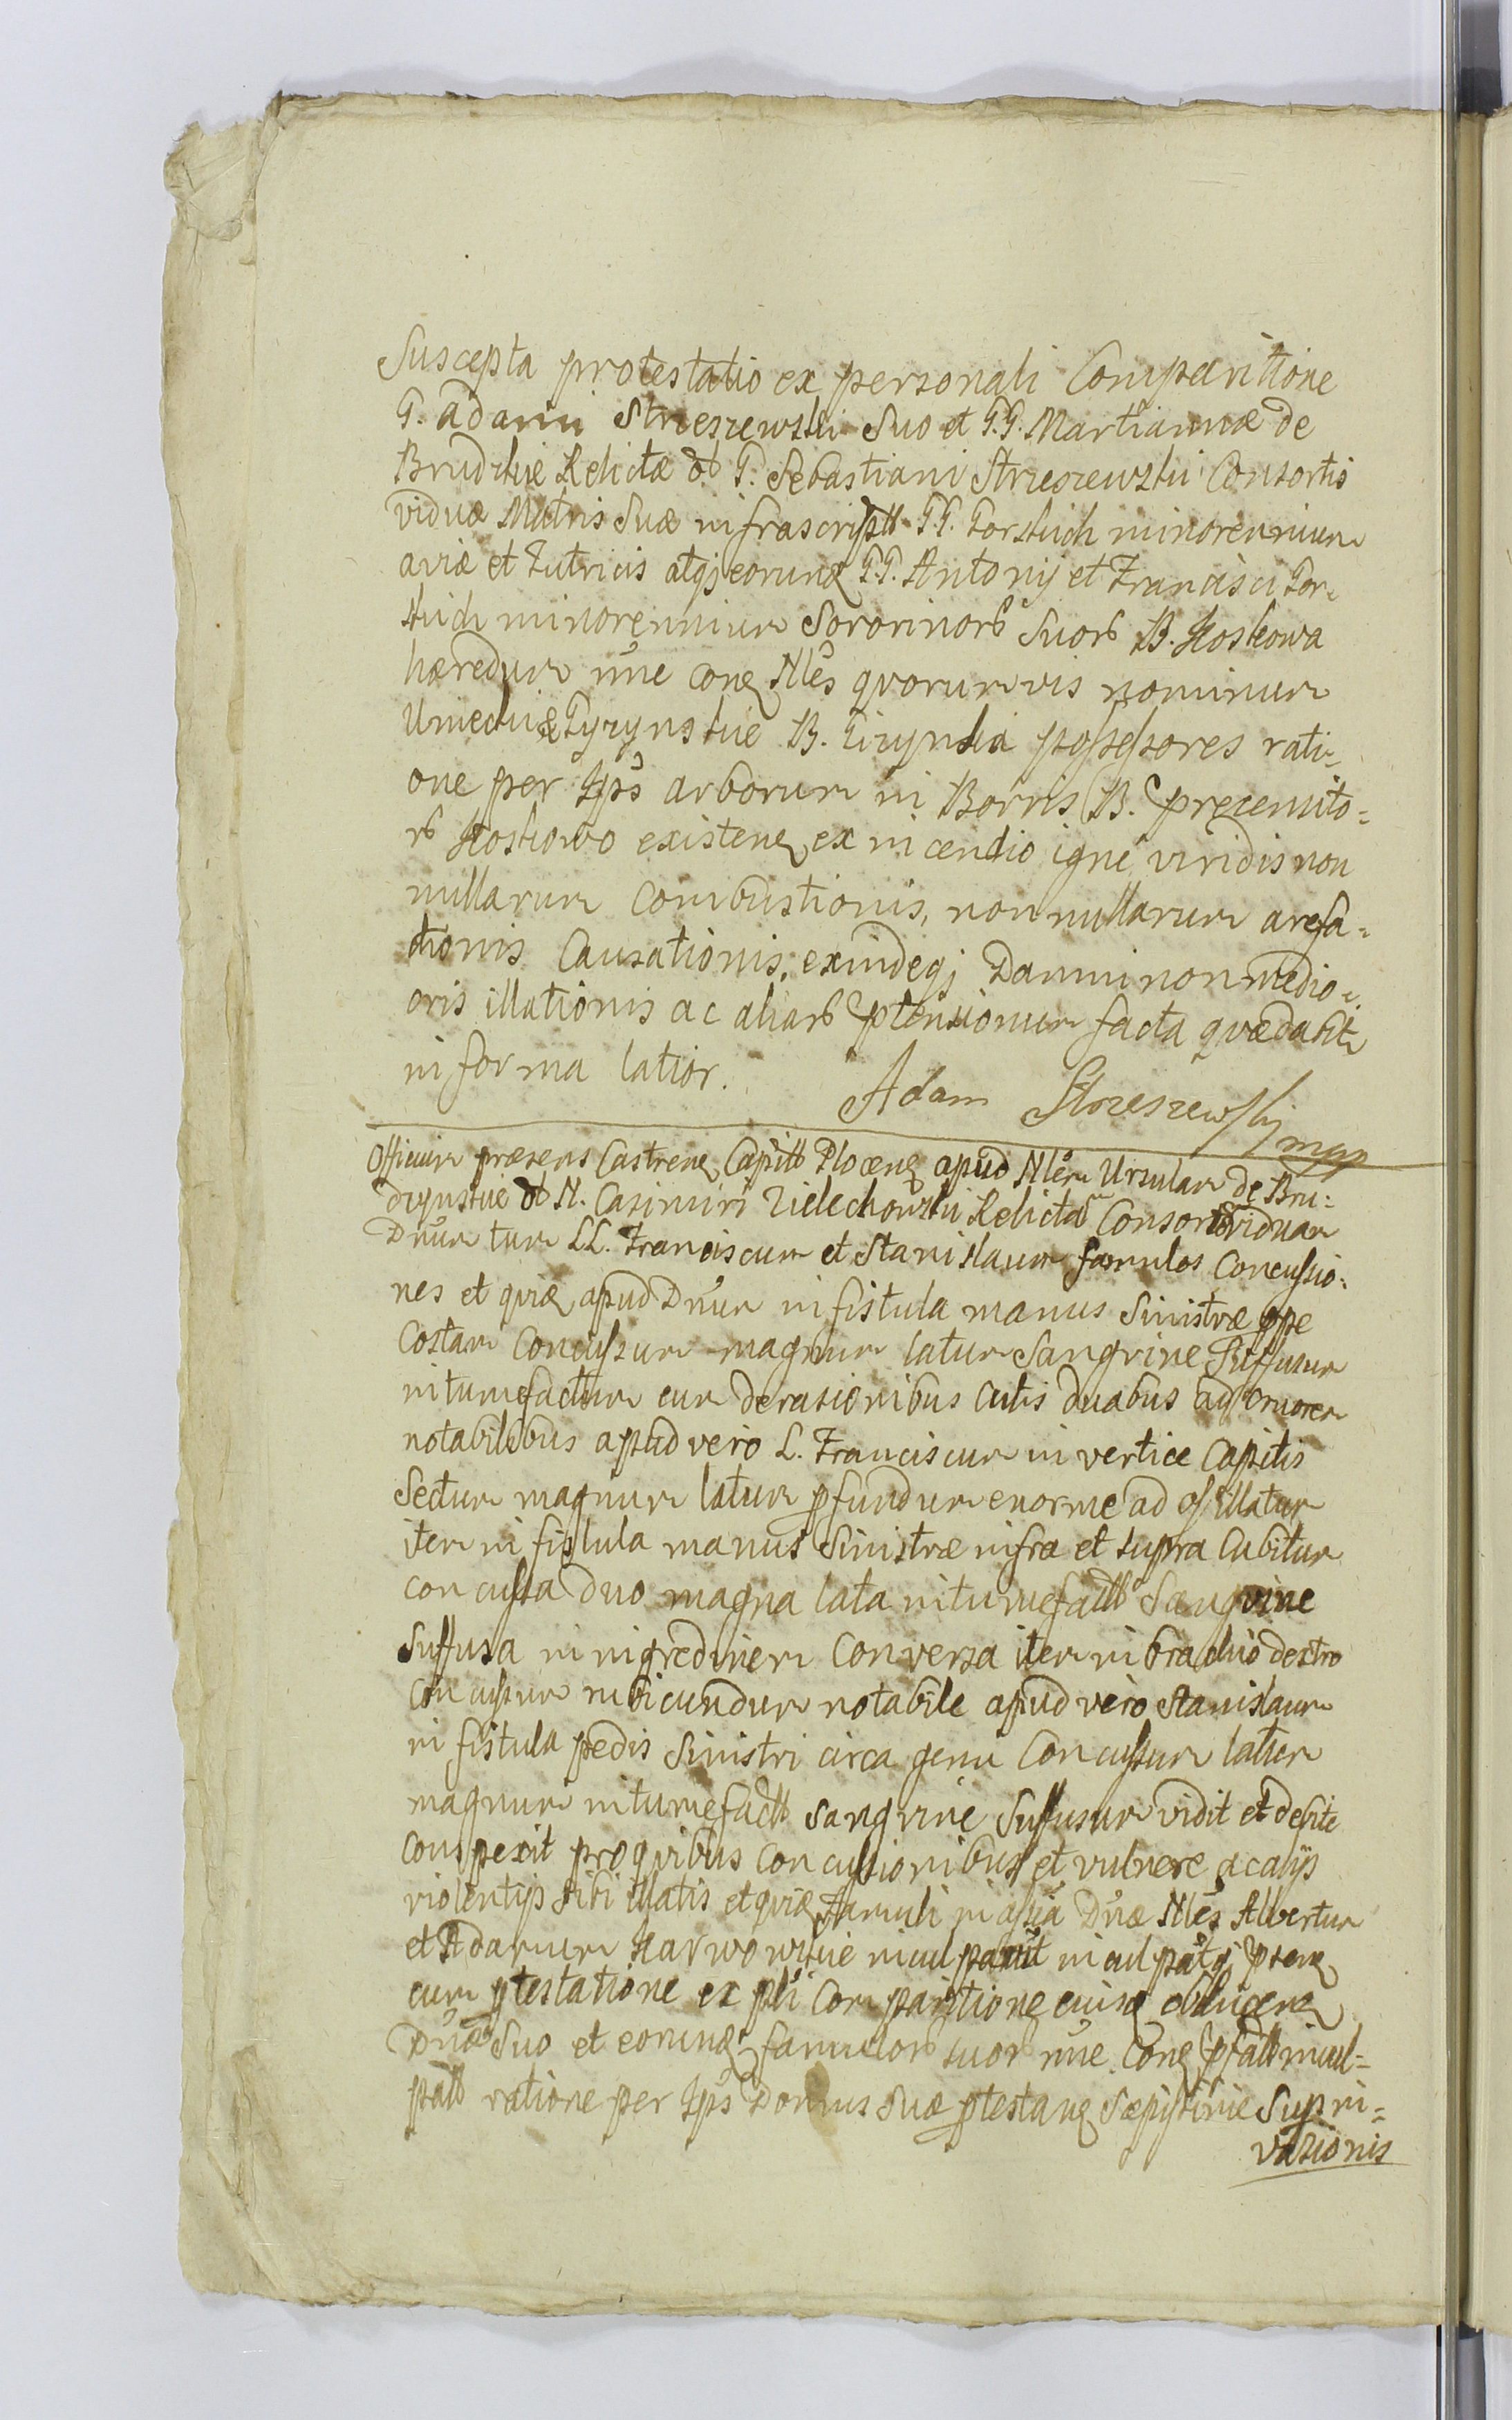 Suscepta protestatio ex personali Comparitione
G. Adami Strzeszewski Suo et G.G. Martiannæ de
Brudzkie Relictæ ol G. Sebastiani Strzeszewski Consortis
viduæ Matris Suæ infrascriptt G.G. Gorskich minorennium
aviæ et Tutricis atqj eorunq G.G. Antonij et Francisci Gor-
skich minorennium Sororinorb Suorb B. Koskowa
hæredum nnê conq Nlês qvorumvis nominum
Umiecki & Gyzynskie B. Gizynka possessores rati-
one per Ipŝ arborum in Borris B. precensito=
rb Koskowo existenq ex incendio igne viridis non
nullarum Combustionis, nonnullarum arefa=
ctionis Causationis, exindeqj Damni non medio-
cris illationis ac aliarb ptensionum facta qvæ dabit
in forma latior. Adam Strzeszewski mpp
Officium præsens Castrenq Capittb Plocenq apud Nlêm Ursulam de Bru=
dzynskie ol N. Casimiri Zielechowski Relictam Consortê viduam
Dnâm tum LL. Franciscum et Stanislaum famulos Concussio=
nes et qviæ apud Dnâm in fistula manus Sinistræ ppe
Costam Concussum magnum latum Sangvine Suffusum
intumefactum cum derasionibus Cutis duabus ad cruorem
notabilibus apud vero L. Franciscum in vertice Capitis
Sectum magnum latum pfundum enorme ad os illatum
item in fistula manus Sinistræ infra et supra Cubitum
concussa duo magna lata intumefacttb Sangvine
Suffusa in nigredinem Conversa item in brachio dextro
Concussum rubicundum notabile apud vero Stanislaum
in fistula pedis Sinistri circa genu Concussum latum
magnum intumefacttb Sangvine Suffusum vidit et debite
conspexit pro qvibus concussionibus et vulnere ac alijs
violentijs sibi illatis et qviæ Famuli in assia Dnæ Nlês Albertum
et Adamum Karwowskie inculpavit inculpatqj ptenq
cum ptestatione ex pli Comparitione ejusq obducenq
Dnæ Suo et eorunq famulorb suorb nnê Conq pfattb incul=
pattb ratione per Ipŝ Domus Suæ ptestanq Sæpissime Sup in=
vasionis